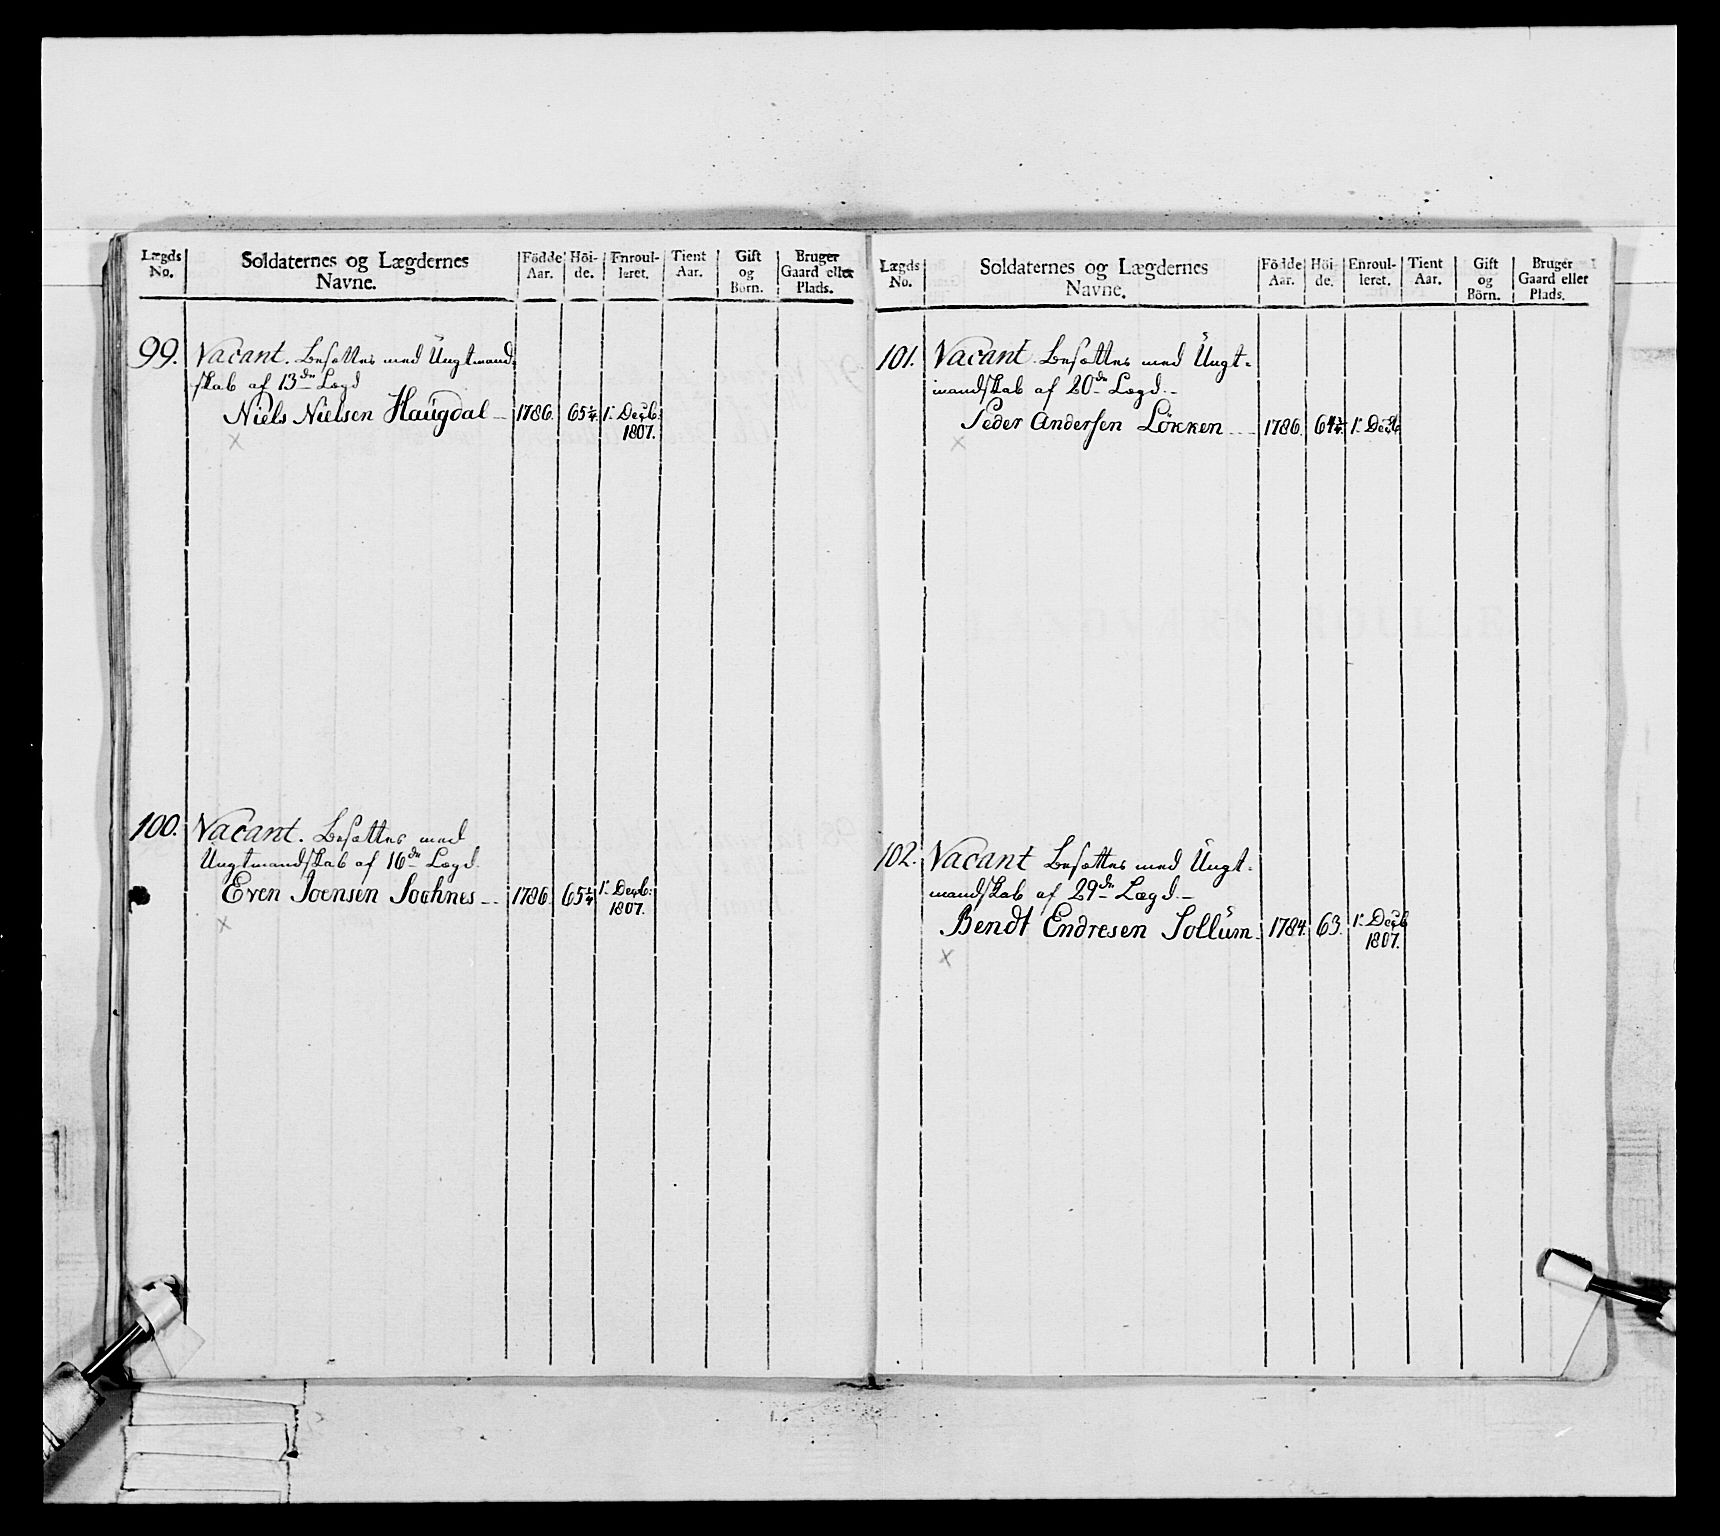 Lægds No. | Soldaternes og Lægdernes Navne. | Födde Aar. | Höi-de. | Enroul-leret. | Tient Aar. | Gift og Börn. | Bruger Gaard eller Plads.
99. Vacant. Besættes med Ungtmand-
skab af 13de Lægd
Niels Nielsen Haugdal – 1786. 65¼ 1. Decb:
1807.
×
100. Vacant. Besættes med
Ungtmandskab af 16de Lægd.
Even Joensen – 1786. 65¼ 1. Decb:
1807.
×
Lægds No. | Soldaternes og Lægdernes Navne. | Födde Aar. | Höi-de. | Enroul-leret. | Tient Aar. | Gift og Börn. | Bruger Gaard eller Plads.
101. Vacant. Besættes med Ungt-
mandskab af 20de Lægd. –
Peder Andersen Lökken – 1786. 1. Decb
×
102. Vacant Besættes med Ungt-
mandskab af 29de Lægd. –
Bendt Endresen Sollum. 1784. 63. 1. Decb
1807.
×